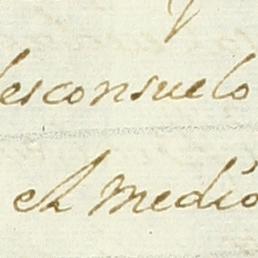 desconsuelo
el medio